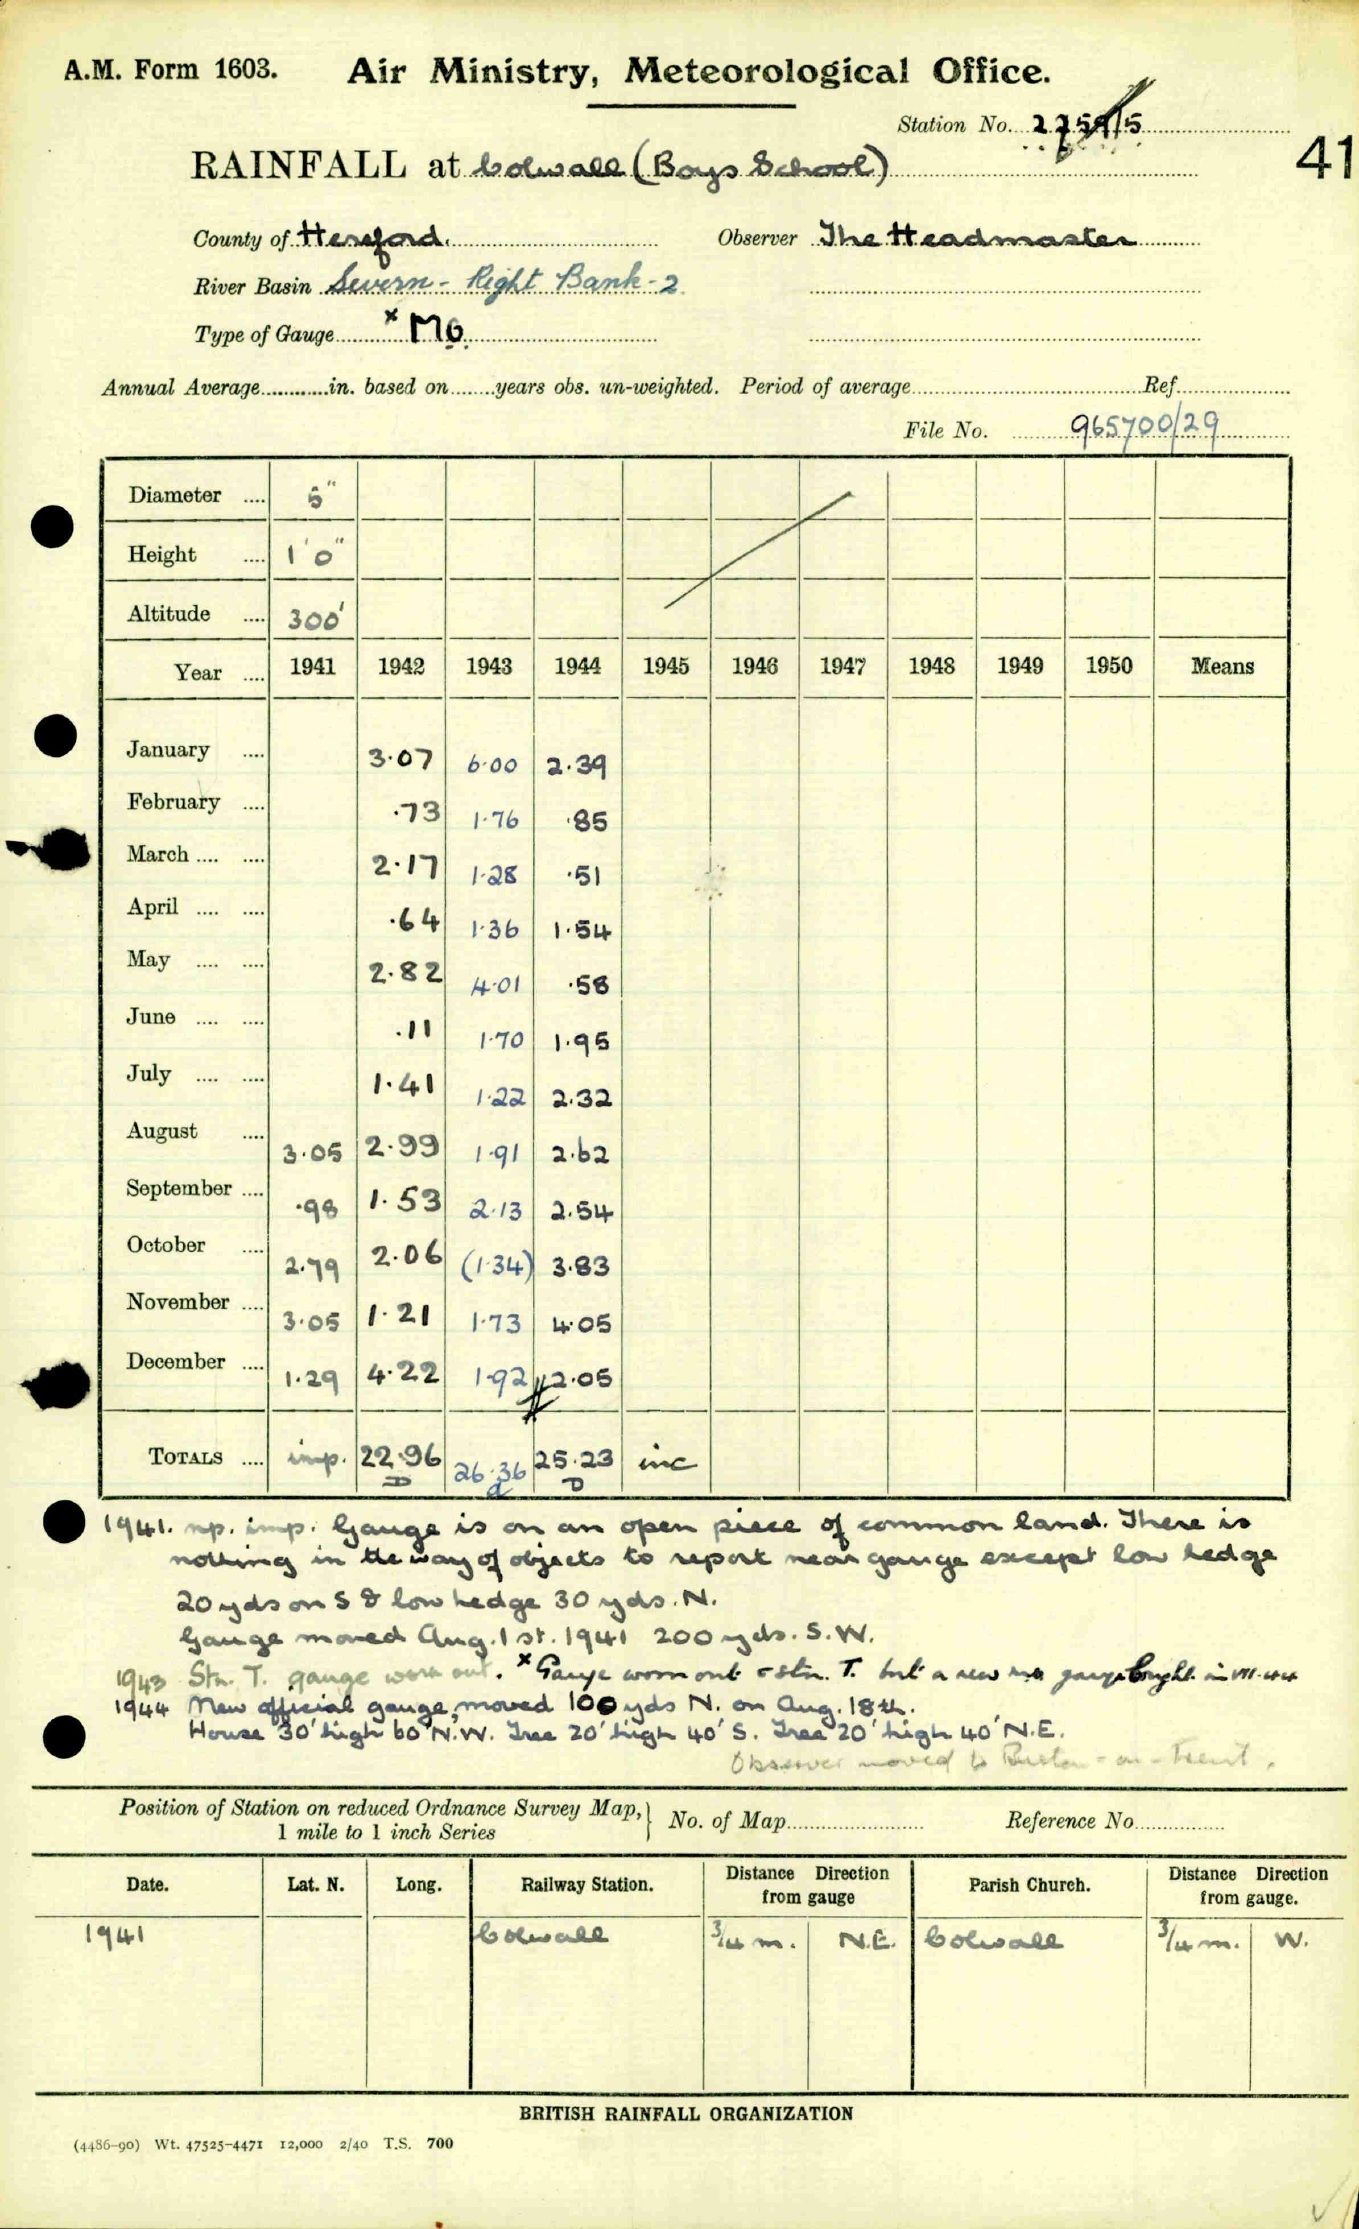 A.M. Form 1603. Air Ministry, Meteorological Office.
Station No. 2259/5
41
RAINFALL at Colwall (Boys School)
County of Hereford. Observer The Headmaster
River Basin Severn - Right Bank - 2
Type of Gauge x MO.
Annual Average in. based on years obs. un-weighted. Period of average Ref.
File No. 965700/29
Diameter 5"
Height 1' 0"
Altitude 300'
Year 1941 1942 1943 1944 1945 1946 1947 1948 1949 1950 Means
January 3·07 6·00 2·39
February ·73 1·76 ·85
March 2·17 1·28 ·51
April ·64 1·36 1·54
May 2·82 4·01 ·58
June ·11 1·70 1·95
July 1·41 1·22 2·32
August 3·05 2·99 1·91 2·62
September ·98 1·53 2·13 2·54
October 2·79 2·06 (1·34) 3·83
November 3·05 1·21 1·73 4·05
December 1·29 4·22 1·92 2·05
TOTALS imp. 22·96 26·36 25·23 inc
D D
1941. np. imp. Gauge is on an open piece of common land. There is
nothing in the way of objects to report near gauge except low hedge
20 yds on S & low hedge 30 yds. N.
Gauge moved Aug. 1st. 1941 200 yds. S.W.
1943 Stn. T. gauge worn out. x Gauge worn out - stn. T. but a new gauge bought in VII.44
1944 New official gauge, moved 100 yds N. on Aug. 18th.
House 30' high 60' N.W. Tree 20' high 40' S. Tree 20' high 40' N.E.
Observer moved to Burton-on-Trent.
Position of Station on reduced Ordnance Survey Map, } No. of Map Reference No
1 mile to 1 inch Series
Date. Lat. N. Long. Railway Station. Distance Direction from gauge Parish Church. Distance Direction from gauge.
1941 Colwall 3/4 m. N.E. Colwall 3/4 m. W.
BRITISH RAINFALL ORGANIZATION
(4486-90) Wt. 47525-4471 12,000 2/40 T.S. 700